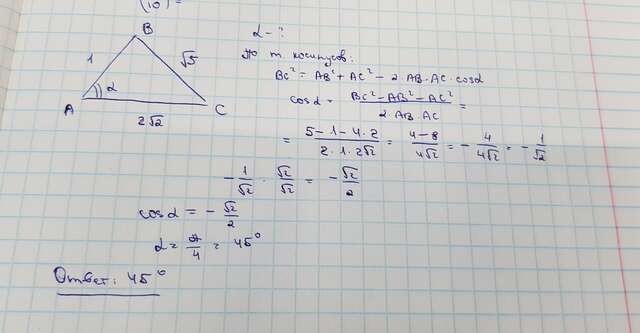 (10) =
B
1
√5
α
A
C
2√2
α - ?
По т. косинусов:
BC² = AB² + AC² - 2 AB·AC·cosα
cosα = (BC² - AB² - AC²) / (2 AB·AC) =
= (5 - 1 - 4·2) / (2·1·2√2) = (4 - 8) / (4√2) = - 4 / (4√2) = - 1 / √2
- 1/√2 · √2/√2 = - √2/2
cosα = - √2/2
α = π/4 = 45°
Ответ: 45°